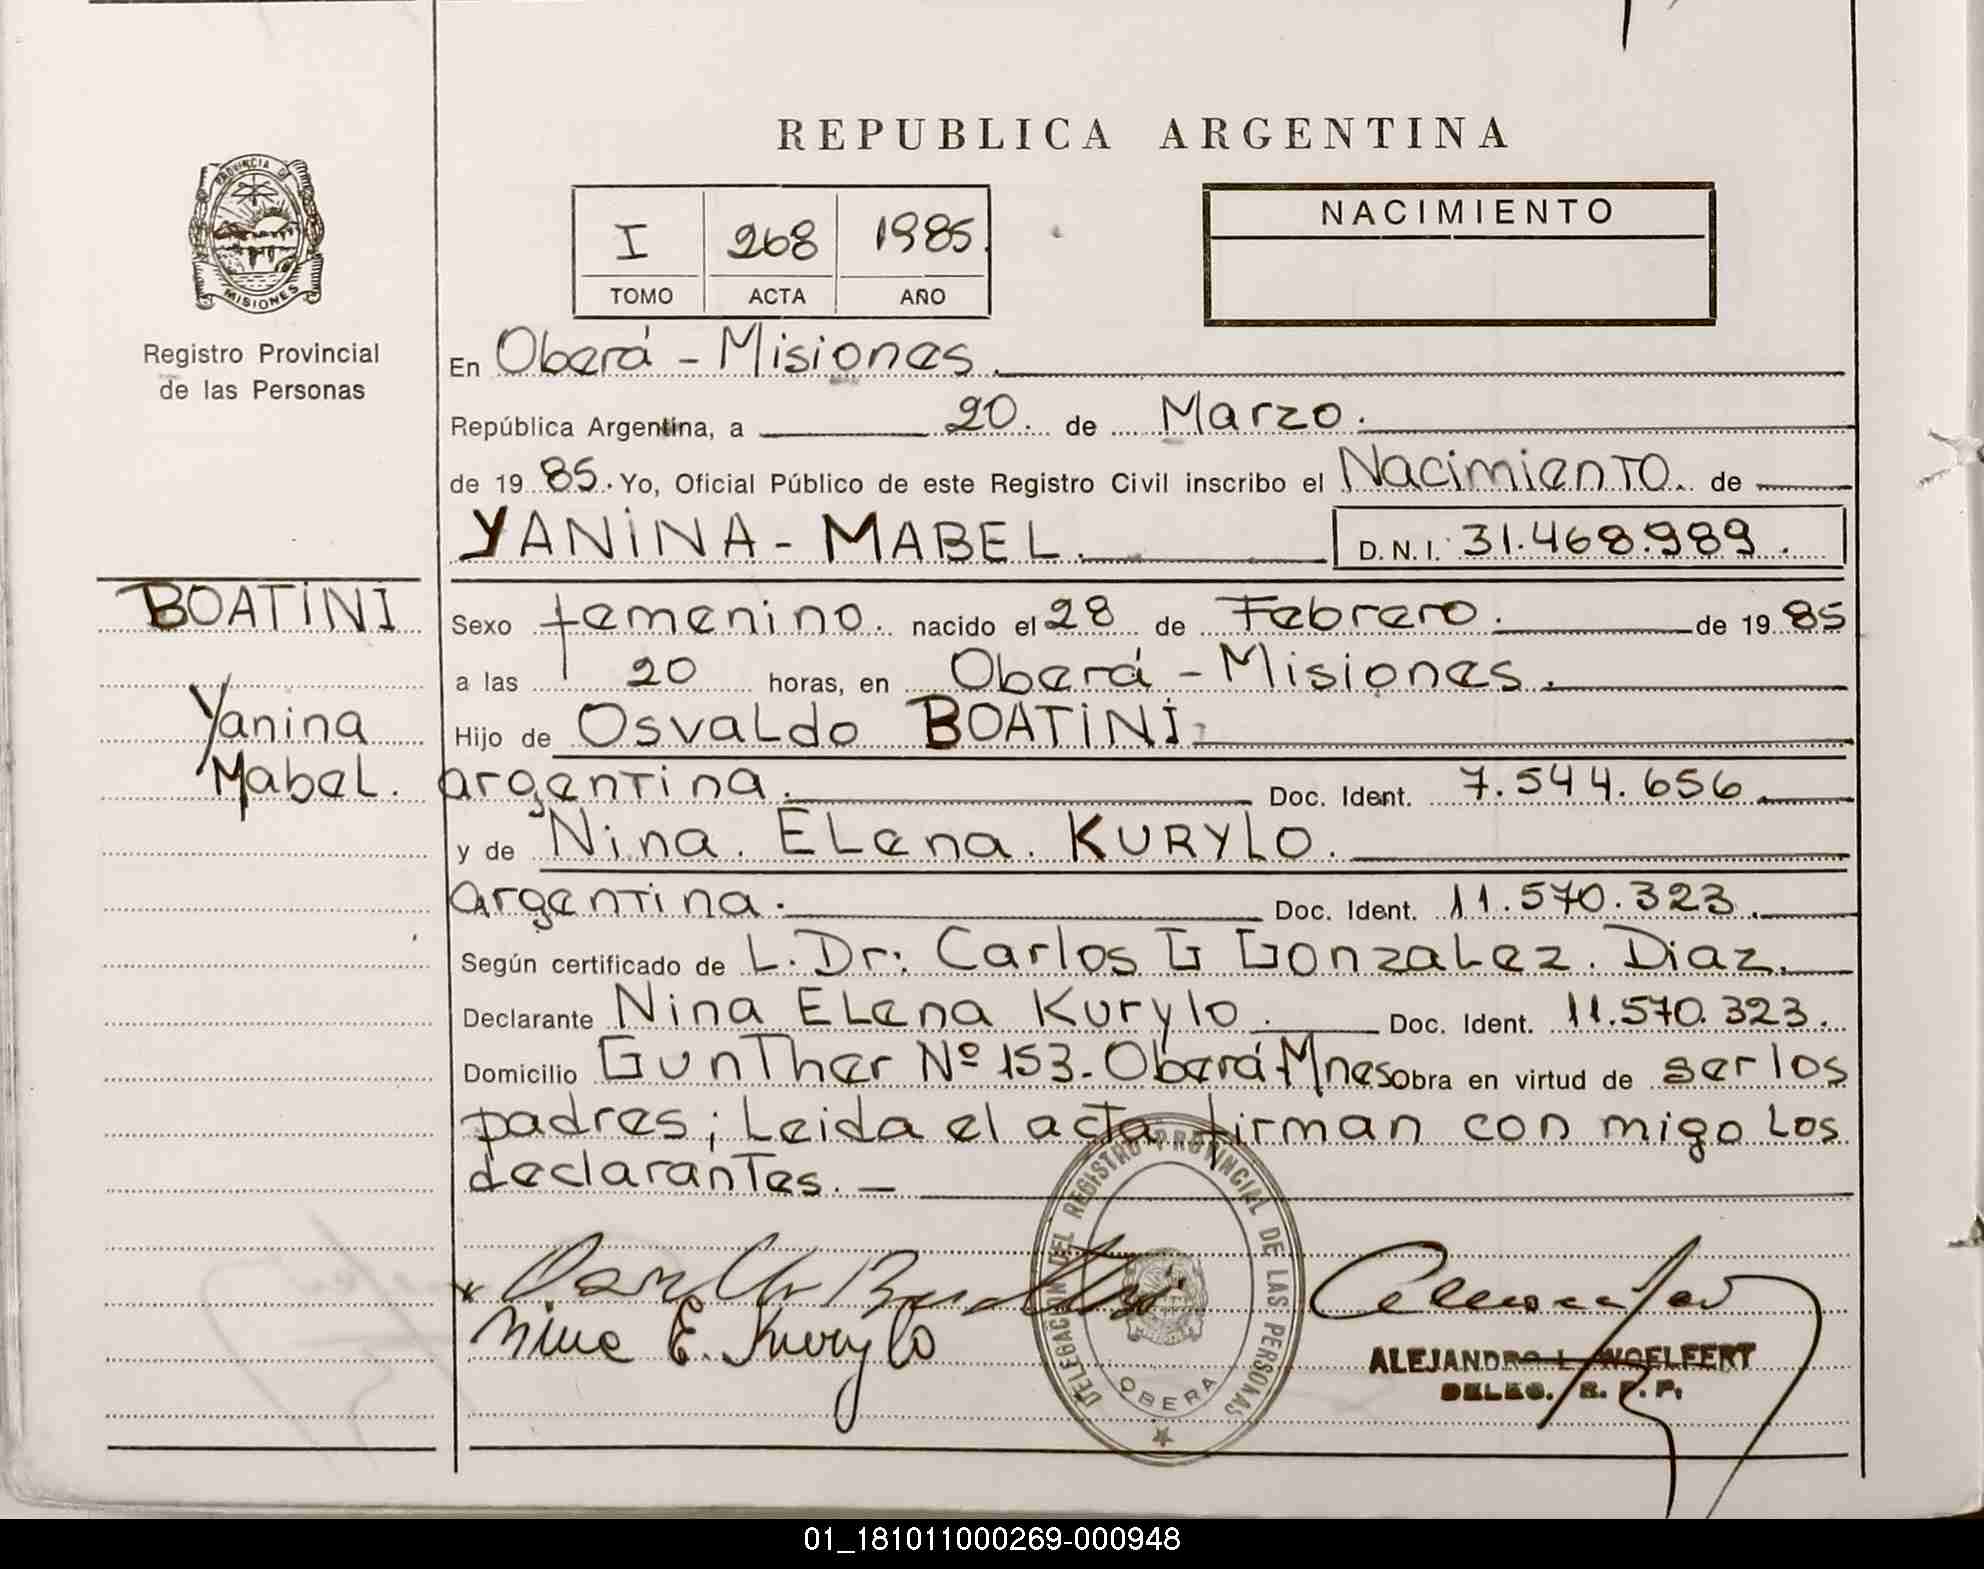 REPUBLICA ARGENTINA
PROVINCIA DE
MISIONES
Registro Provincial
de las Personas
I 268 1985.
TOMO ACTA AÑO
NACIMIENTO
En Oberá - Misiones.
República Argentina, a 20. de Marzo.
de 1985. Yo, Oficial Público de este Registro Civil inscribo el Nacimiento. de
YANINA - MABEL. D. N. I. 31.468.989.
BOATINI
Yanina
Mabel.
Sexo femenino. nacido el 28 de Febrero. de 1985
a las 20 horas, en Oberá - Misiones.
Hijo de Osvaldo BOATINI
argentina. Doc. Ident. 7.544.656.
y de Nina. Elena. KURYLO.
argentina. Doc. Ident. 11.570.323.
Según certificado de L. Dr: Carlos G Gonzalez. Diaz.
Declarante Nina Elena Kurylo. Doc. Ident. 11.570.323.
Domicilio Gunther Nº 153. Oberá-Mnes Obra en virtud de ser los
padres; Leida el acta firman con migo Los
declarantes. —
Nina E. Kurylo
DELEGACION DEL REGISTRO PROVINCIAL DE LAS PERSONAS
OBERA
ALEJANDRO L. WOELFERT
DELEG. R. P. P.
01_181011000269-000948